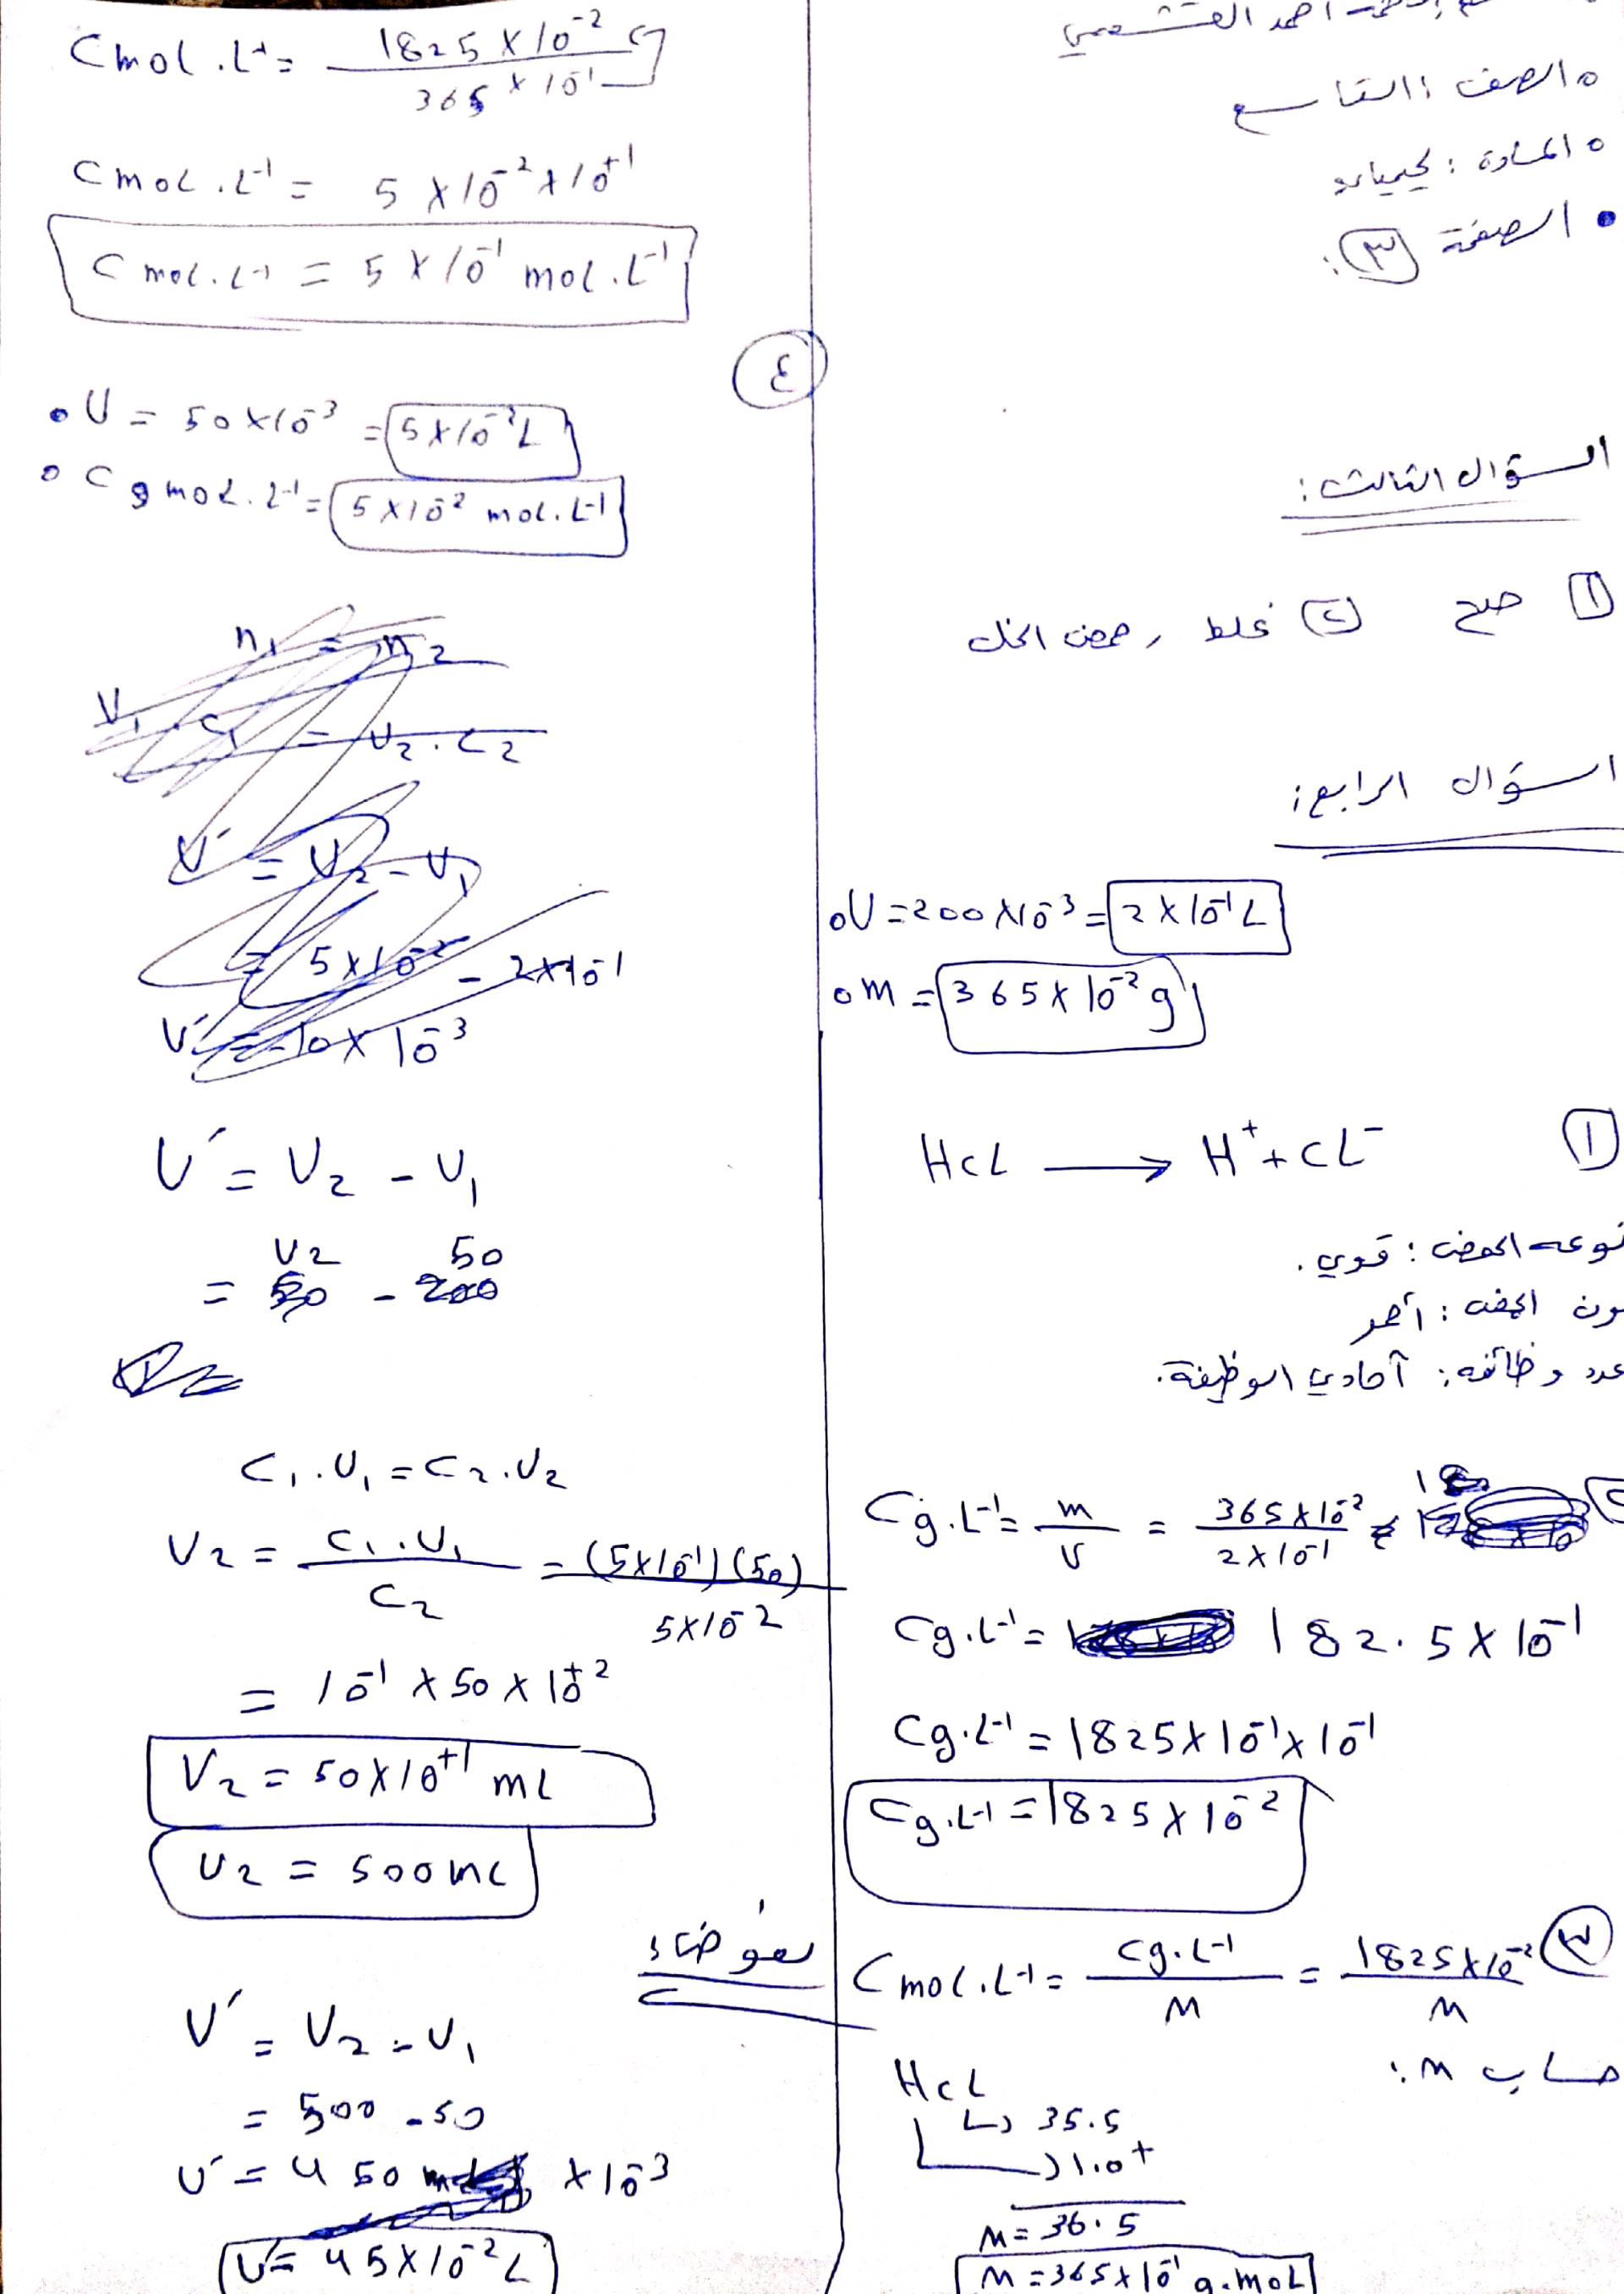 احمد القشعمي
• الصف : التاسع
• المادة : كيمياء
• الصفحة (٣) :
السؤال الثالث :
① صح ② غلط , حمض الخل
السؤال الرابع :
• V = 200 × 10⁻³ = 2 × 10⁻¹ L
• m = 365 × 10⁻² g
① HCL → H⁺ + CL⁻
نوع الحمض : قوي .
لون الحمض : أحمر
عدد وظائفه : أحادي الوظيفة .
Cg.L⁻¹ = m / V = 365 × 10⁻² / 2 × 10⁻¹
Cg.L⁻¹ = 182.5 × 10⁻¹
Cg.L⁻¹ = 1825 × 10⁻¹ × 10⁻¹
Cg.L⁻¹ = 1825 × 10⁻²
③ Cmol.L⁻¹ = Cg.L⁻¹ / M = 1825 × 10⁻² / M
حساب M :
HCL
↳ 35.5
→ 1.0 +
M = 36.5
M = 365 × 10⁻¹ g.moL
Cmol.L⁻¹ = 1825 × 10⁻² / 365 × 10⁻¹
CmoL.L⁻¹ = 5 × 10⁻² × 10⁺¹
Cmol.L⁻¹ = 5 × 10⁻¹ mol.L⁻¹
④
• V = 50 × 10⁻³ = 5 × 10⁻² L
• C mol.L⁻¹ = 5 × 10⁻² mol.L⁻¹
n₁ = n₂
V₁ . C₁ = V₂ . C₂
V′ = V₂ - V₁
= 5 × 10⁻² - 2 × 10⁻¹
V′ = V₂ - V₁
= V₂ - 50
C₁ . V₁ = C₂ . V₂
V₂ = C₁ . V₁ / C₂ = (5 × 10⁻¹) (50) / 5 × 10⁻²
= 10⁻¹ × 50 × 10⁺²
V₂ = 50 × 10⁺¹ mL
V₂ = 500 mL
نعوض :
V′ = V₂ - V₁
= 500 - 50
V′ = 450 × 10⁻³
V′ = 45 × 10⁻² L